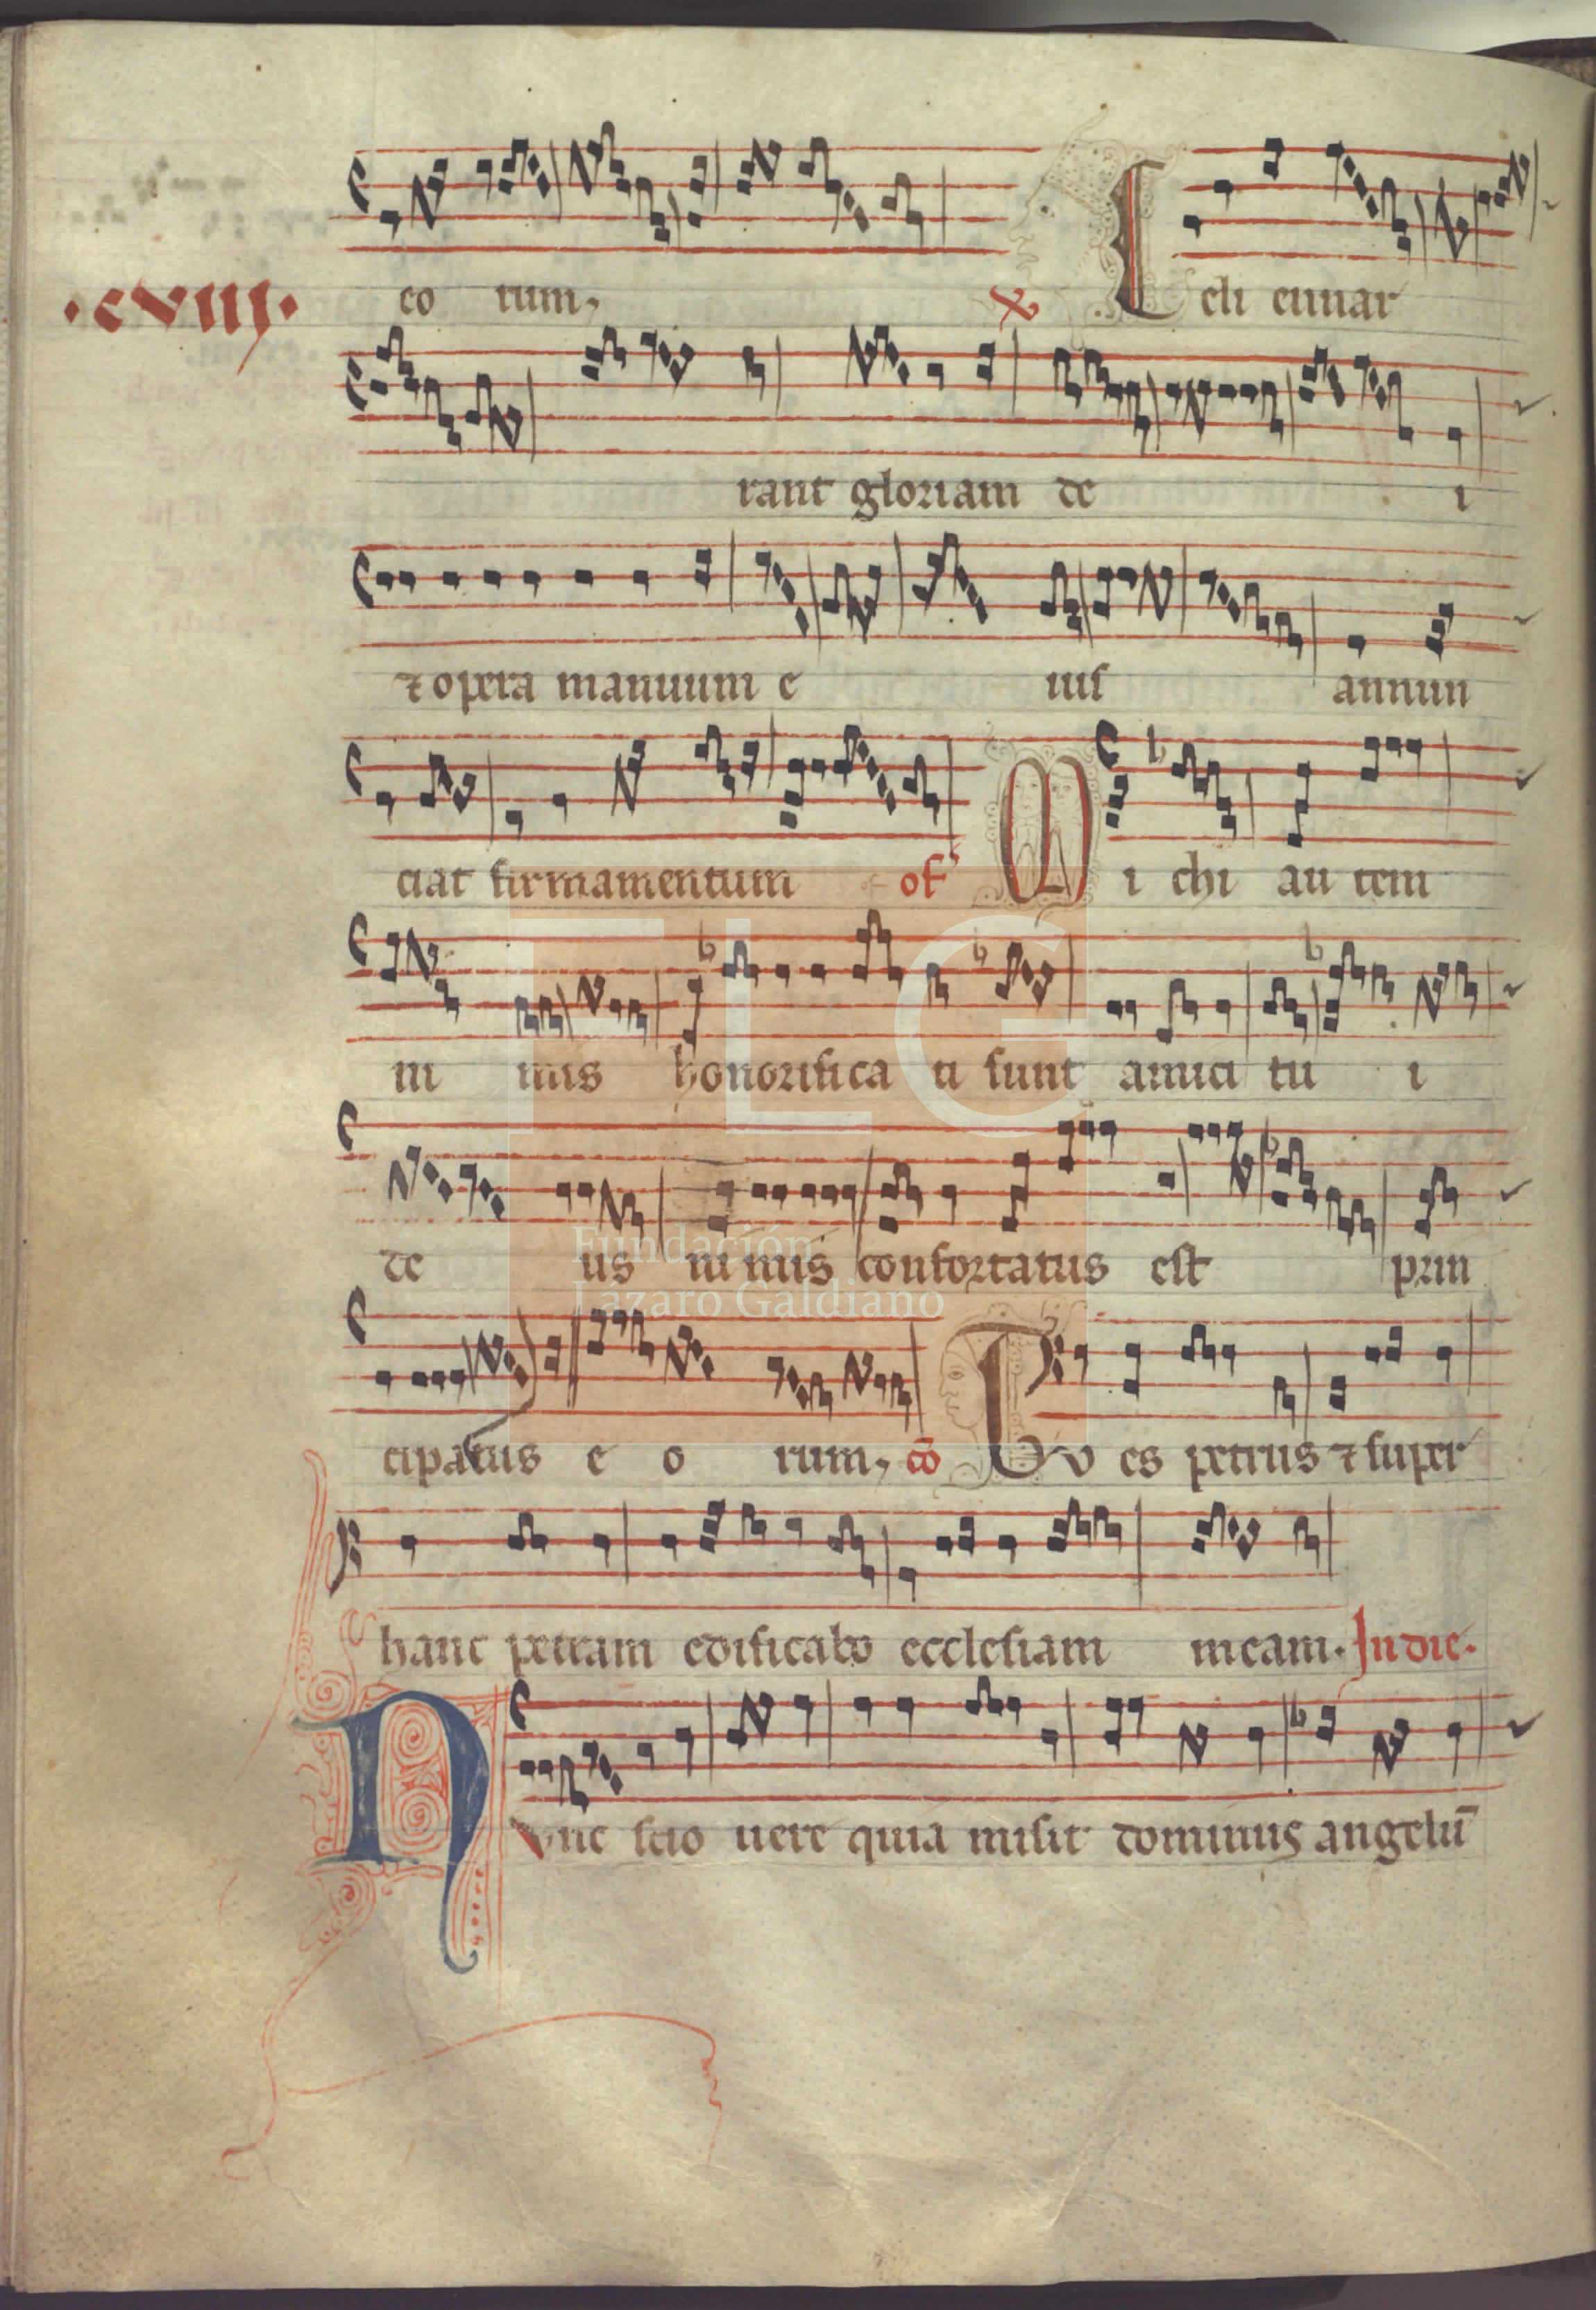 .cviij.
eo rum, ℣ Celi ennar
rant gloriam de i
⁊ opera manuum e ius annun
ciat firmamentum of' Michi autem
ni mis honorifica ti sunt amici tu i
de us nimis confortatus est prin
Fundación
Lázaro Galdiano
cipatus e o rum, cō Tv es petrus ⁊ super
hanc petram edificabo ecclesiam meam. In die.
Nvnc scio uere quia misit dominus angelū
FLG